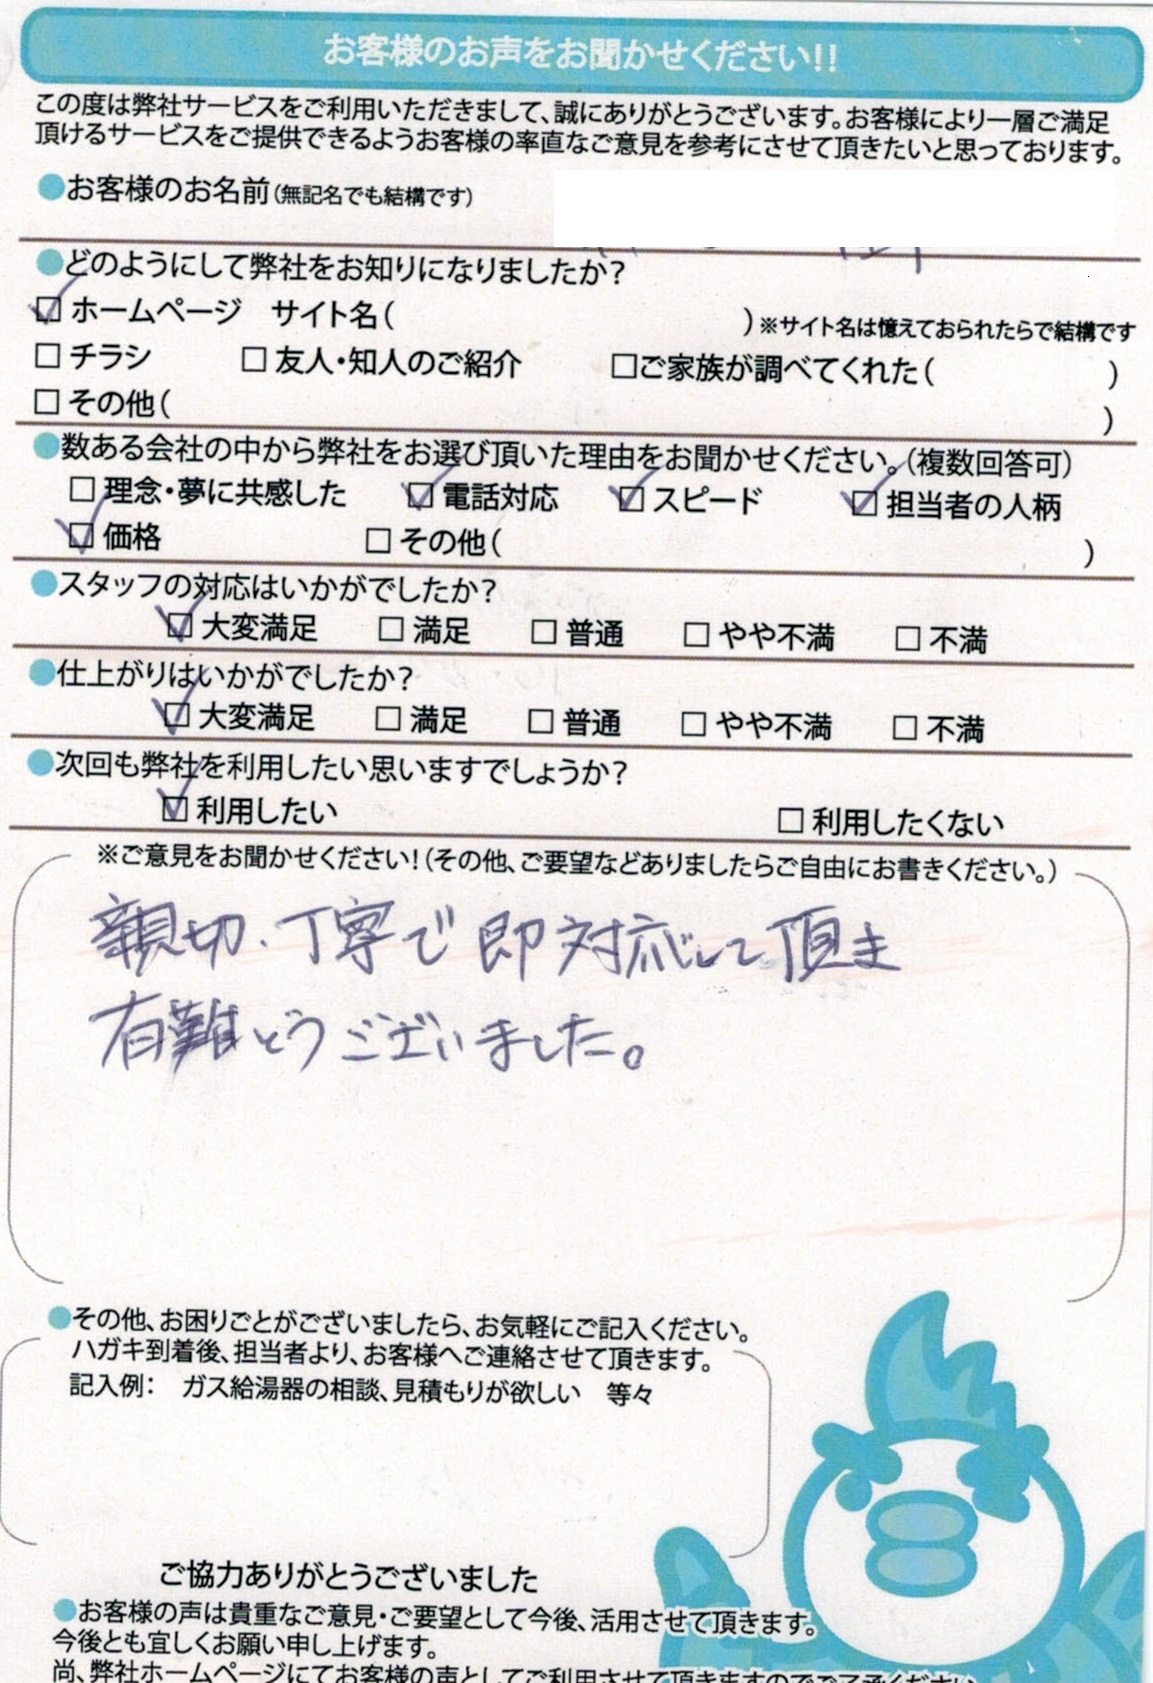 お客様のお声をお聞かせください!!
この度は弊社サービスをご利用いただきまして、誠にありがとうございます。お客様により一層ご満足
頂けるサービスをご提供できるようお客様の率直なご意見を参考にさせて頂きたいと思っております。
●お客様のお名前(無記名でも結構です)
●どのようにして弊社をお知りになりましたか?
☑ ホームページ サイト名( )※サイト名は憶えておられたらで結構です
□ チラシ □ 友人・知人のご紹介 □ご家族が調べてくれた( )
□ その他( )
●数ある会社の中から弊社をお選び頂いた理由をお聞かせください。(複数回答可)
□ 理念・夢に共感した ☑ 電話対応 ☑ スピード ☑ 担当者の人柄
☑ 価格 □ その他( )
●スタッフの対応はいかがでしたか?
☑ 大変満足 □ 満足 □ 普通 □ やや不満 □ 不満
●仕上がりはいかがでしたか?
☑ 大変満足 □ 満足 □ 普通 □ やや不満 □ 不満
●次回も弊社を利用したい思いますでしょうか?
☑ 利用したい □ 利用したくない
※ご意見をお聞かせください!(その他、ご要望などありましたらご自由にお書きください。)
親切、丁寧で即対応して頂ま
有難どうございました。
●その他、お困りごとがございましたら、お気軽にご記入ください。
ハガキ到着後、担当者より、お客様へご連絡させて頂きます。
記入例： ガス給湯器の相談、見積もりが欲しい 等々
ご協力ありがとうございました
●お客様の声は貴重なご意見・ご要望として今後、活用させて頂きます。
今後とも宜しくお願い申し上げます。
尚、弊社ホームページにてお客様の声としてご利用させて頂きますのでご了承ください